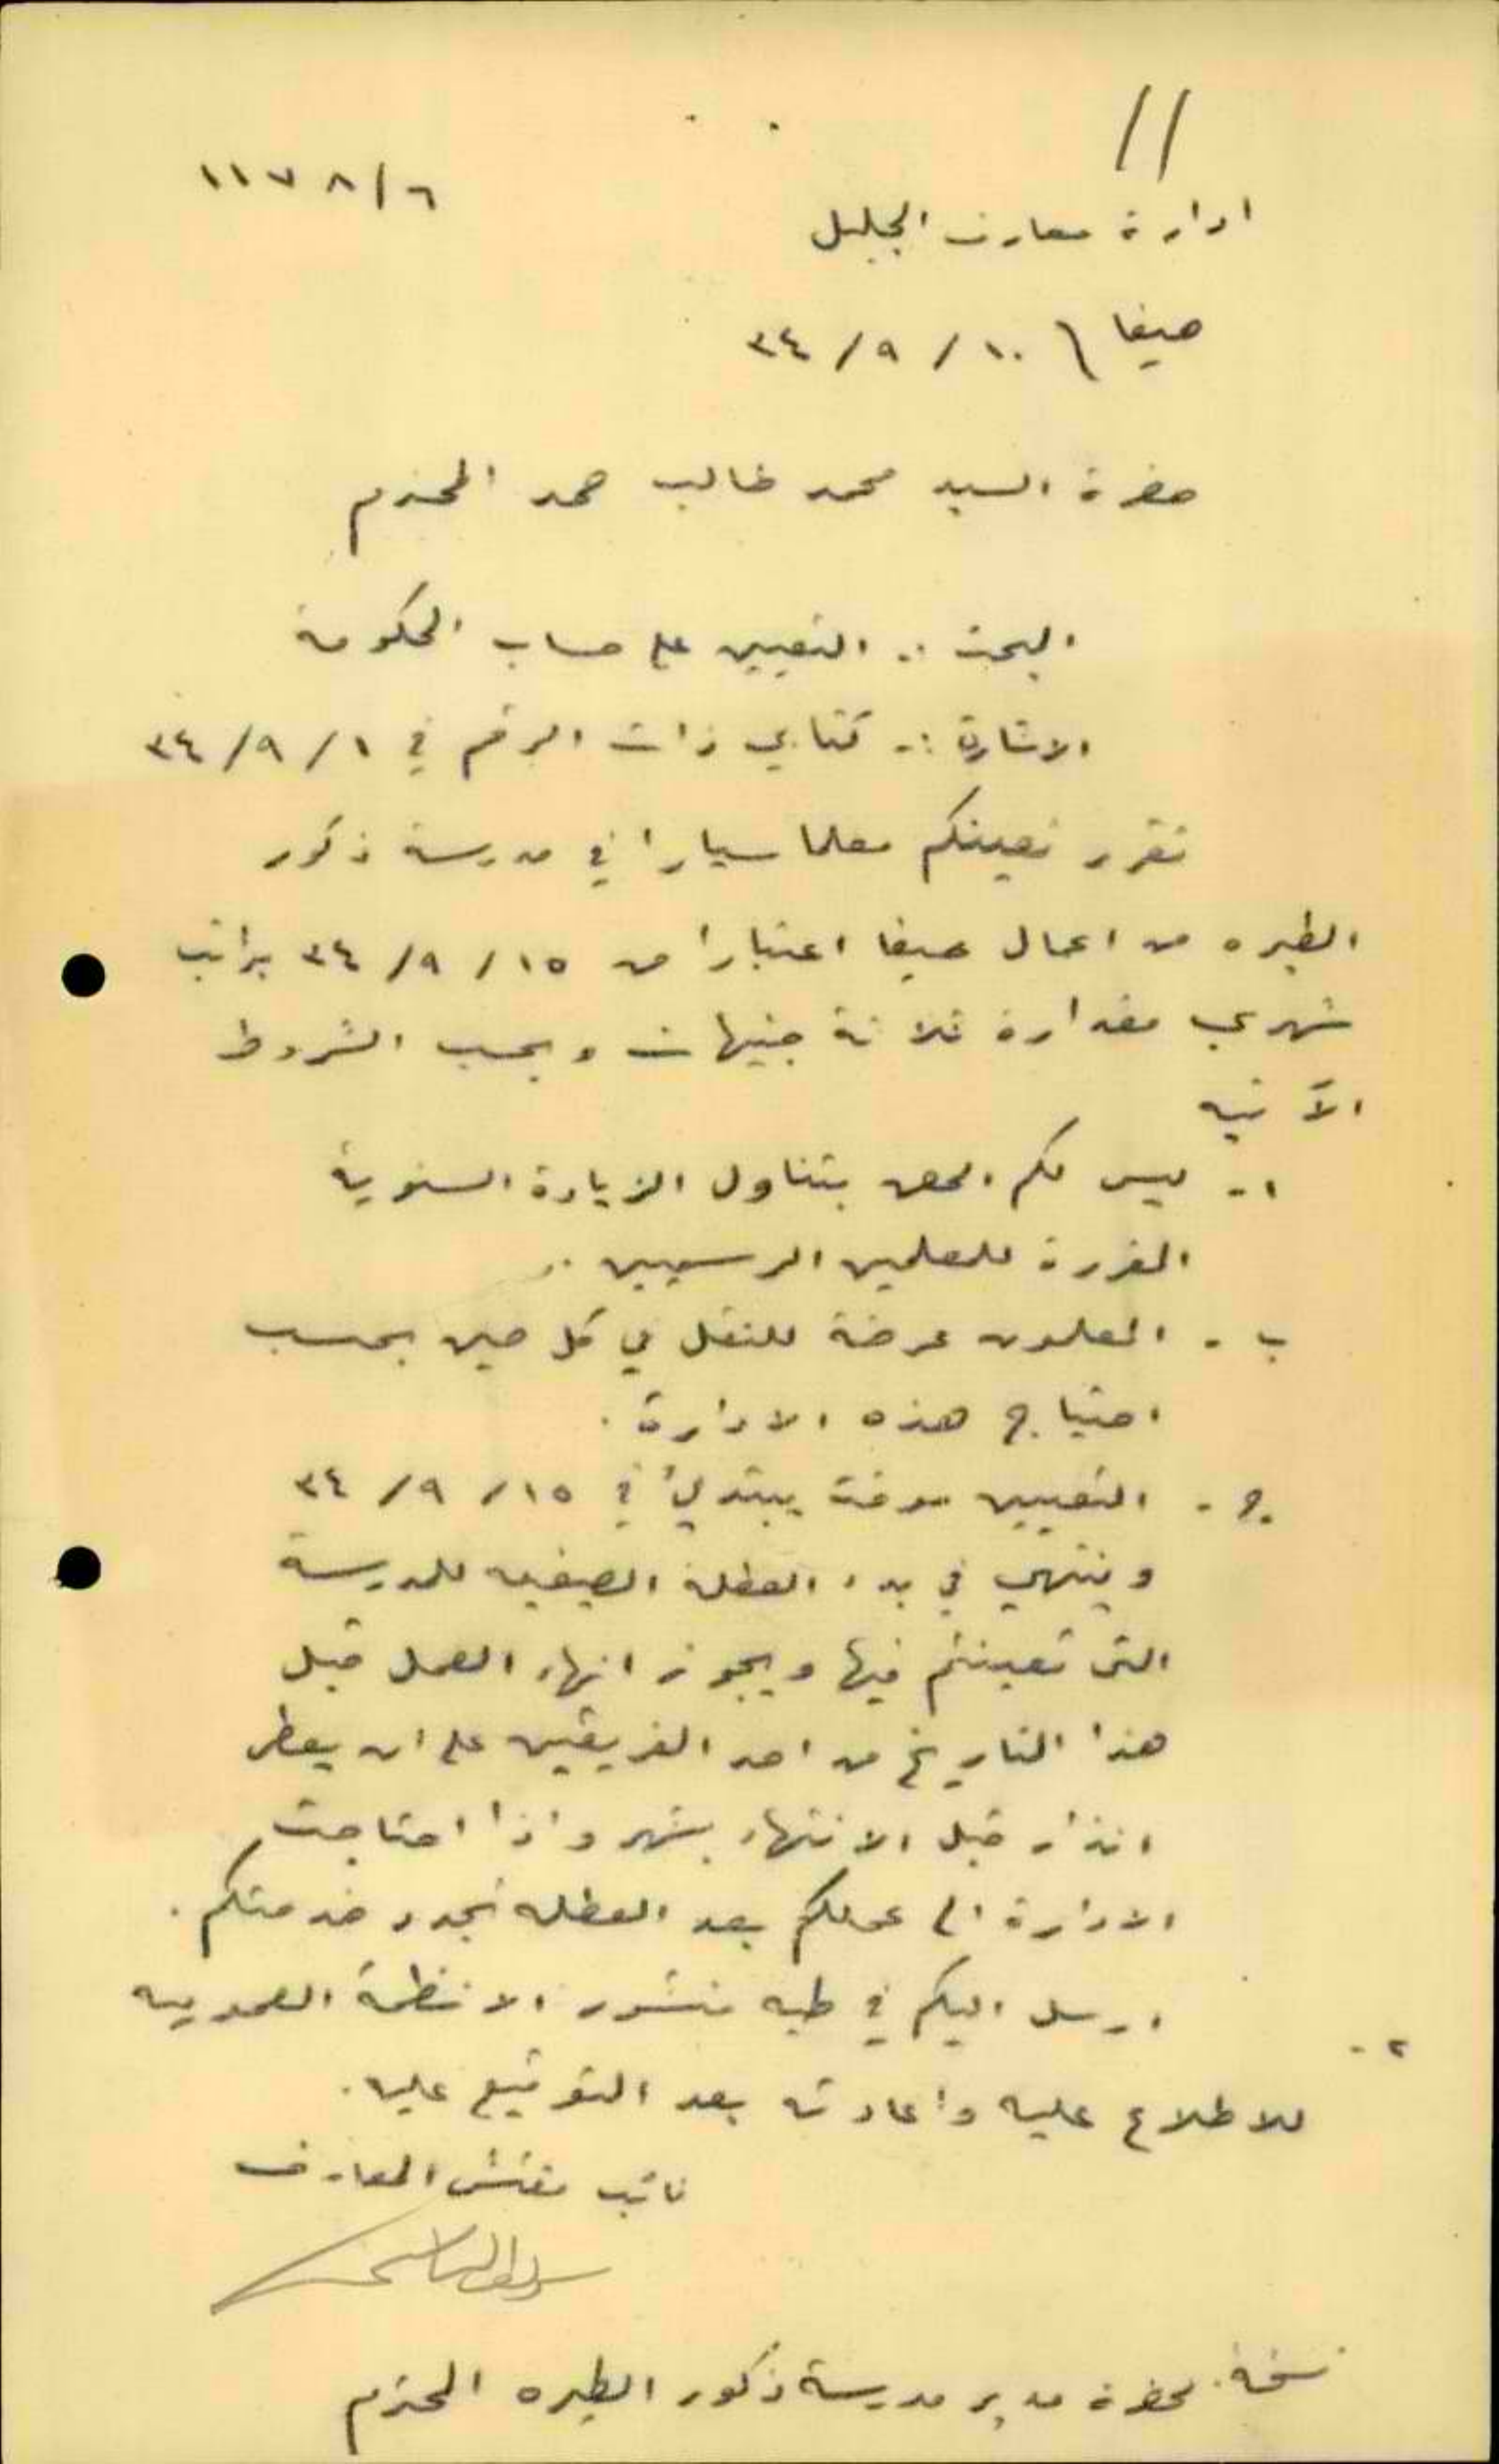 11
٦/١١٧٨
ادارة معارف الجليل
حيفا \ ١٠ / ٩ / ٣٤
حضرة السيد محمد غالب حمد المحترم
البحث :. التعيين على حساب الحكومة
الاشارة :- كتابي ذات الرقم في ١ / ٩ / ٣٤
تقرر تعيينكم معلما سيارا في مدرسة ذكور
الطيره من اعمال حيفا اعتبارا من ١٥ / ٩ / ٣٤ براتب
شهري مقداره ثلاثة جنيهات وبحسب الشروط
الآتيه
ا.- ليس لكم الحق بتناول الزيادة السنوية
المقررة للمعلمين الرسميين ..
ب - المعلمون عرضة للنقل في كل حين بحسب
احتياج هذه الادارة .
ج - التعيين موقت يبتدئ في ١٥ / ٩ / ٣٤
وينتهي في بدء العطلة الصيفيه للمدرسة
التى تعينتم فيها ويجوز انهاء العمل قبل
هذا التاريخ من احد الفريقين على ان يعطى
انذار قبل الانتهاء بشهر واذا احتاجت
الادارة الى عملكم بعد العطله تجدد خدمتكم .
٢ - ارسل اليكم في طيه منشور الانظمة العموميه
للاطلاع عليه واعادته بعد التوقيع عليه .
نائب مفتش المعارف
نسخة لحضرة مدير مدرسة ذكور الطيره المحترم